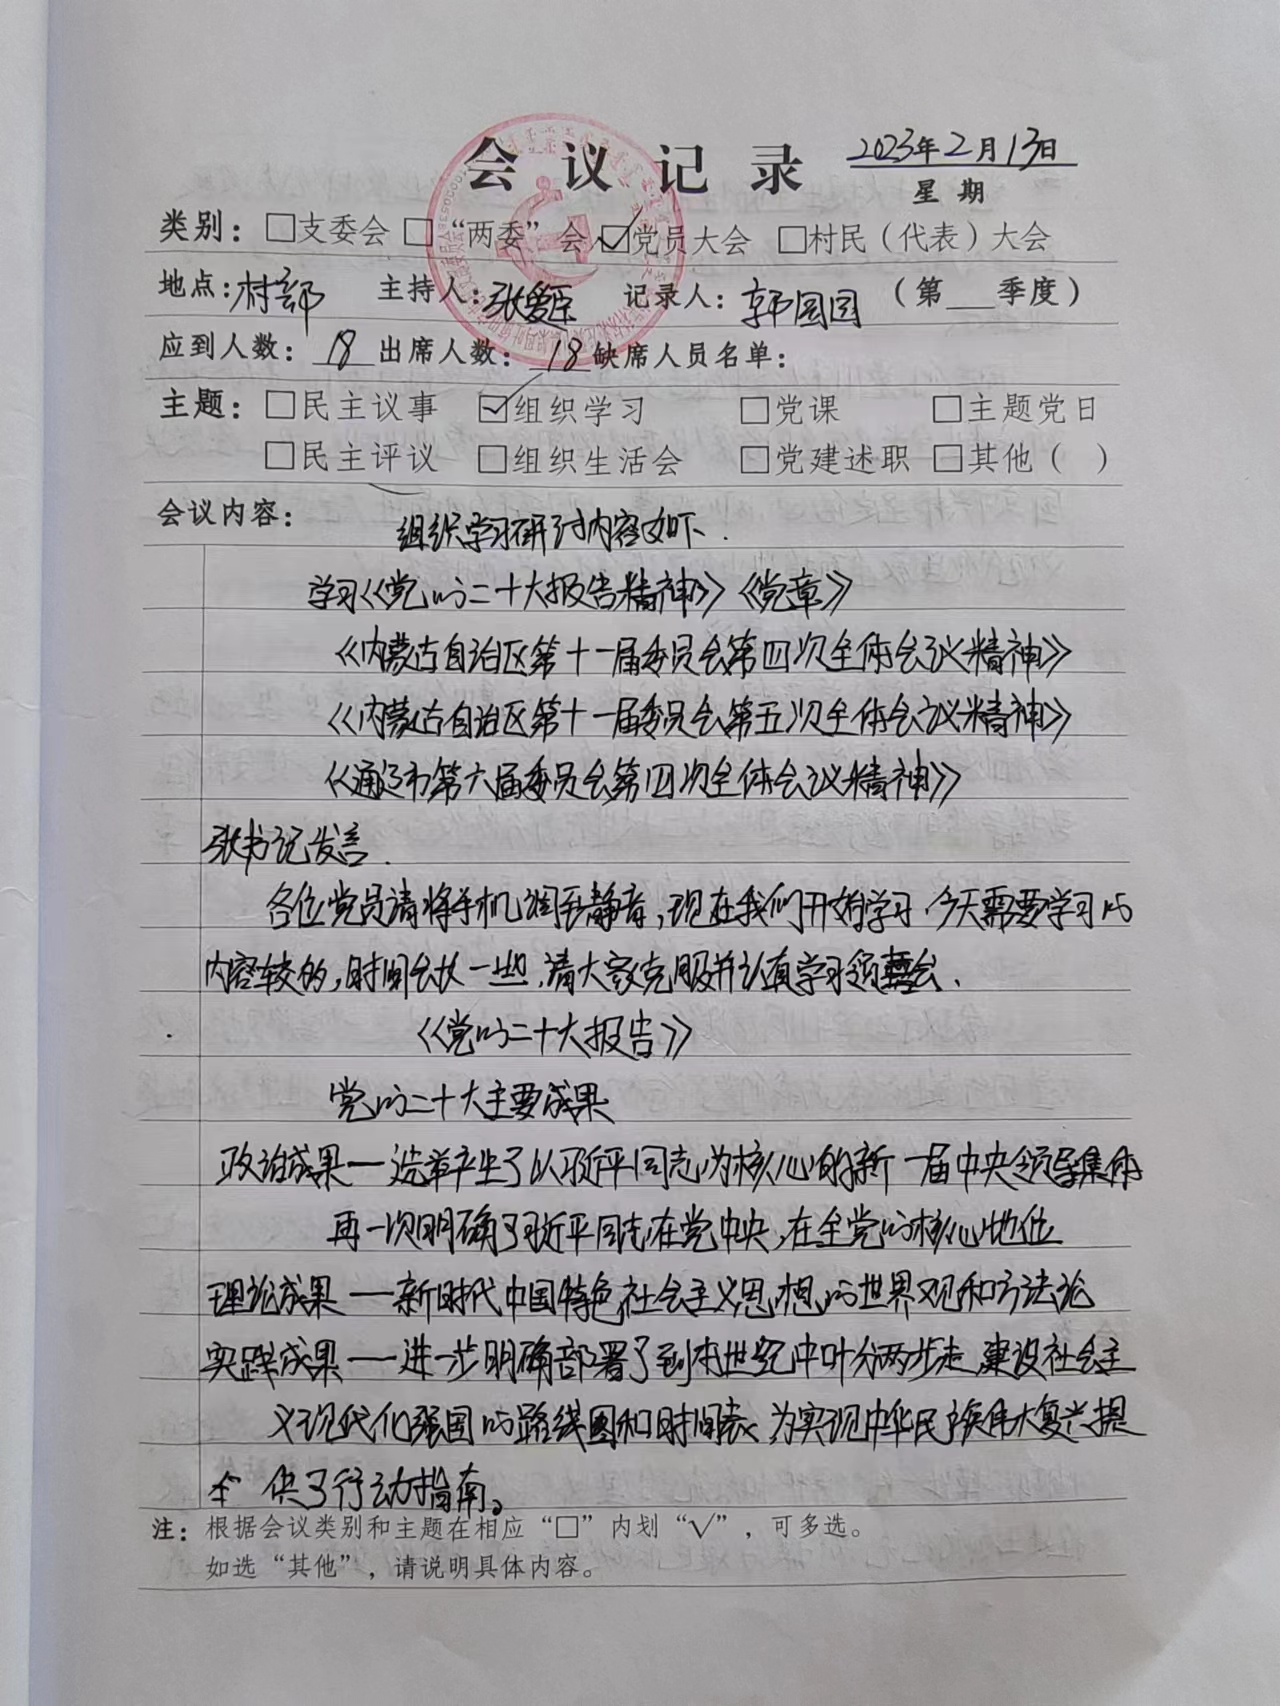 会议记录 2023年2月13日
星期
类别：□支委会 □“两委”会 ☑党员大会 □村民（代表）大会
地点：村部 主持人：张爱臣 记录人：郭园园 （第 季度）
应到人数：18 出席人数：18 缺席人员名单：
主题：□民主议事 ☑组织学习 □党课 □主题党日
□民主评议 □组织生活会 □党建述职 □其他（ ）
会议内容： 组织学习研讨内容如下.
学习《党的二十大报告精神》《党章》
《内蒙古自治区第十一届委员会第四次全体会议精神》
《内蒙古自治区第十一届委员会第五次全体会议精神》
《通辽市第六届委员会第四次全体会议精神》
张书记发言.
各位党员请将手机调到静音,现在我们开始学习.今天需要学习的
内容较多,时间会长一些.请大家克服并认真学习领会.
《党的二十大报告》
党的二十大主要成果
政治成果——选举产生了以习近平同志为核心的新一届中央领导集体
再一次明确了习近平同志在党中央,在全党的核心地位
理论成果——新时代中国特色社会主义思想的世界观和方法论
实践成果——进一步明确部署了到本世纪中叶分两步走建设社会主
义现代化强国的路线图和时间表.为实现中华民族伟大复兴提
供了行动指南。
注：根据会议类别和主题在相应“□”内划“√”，可多选。
如选“其他”，请说明具体内容。